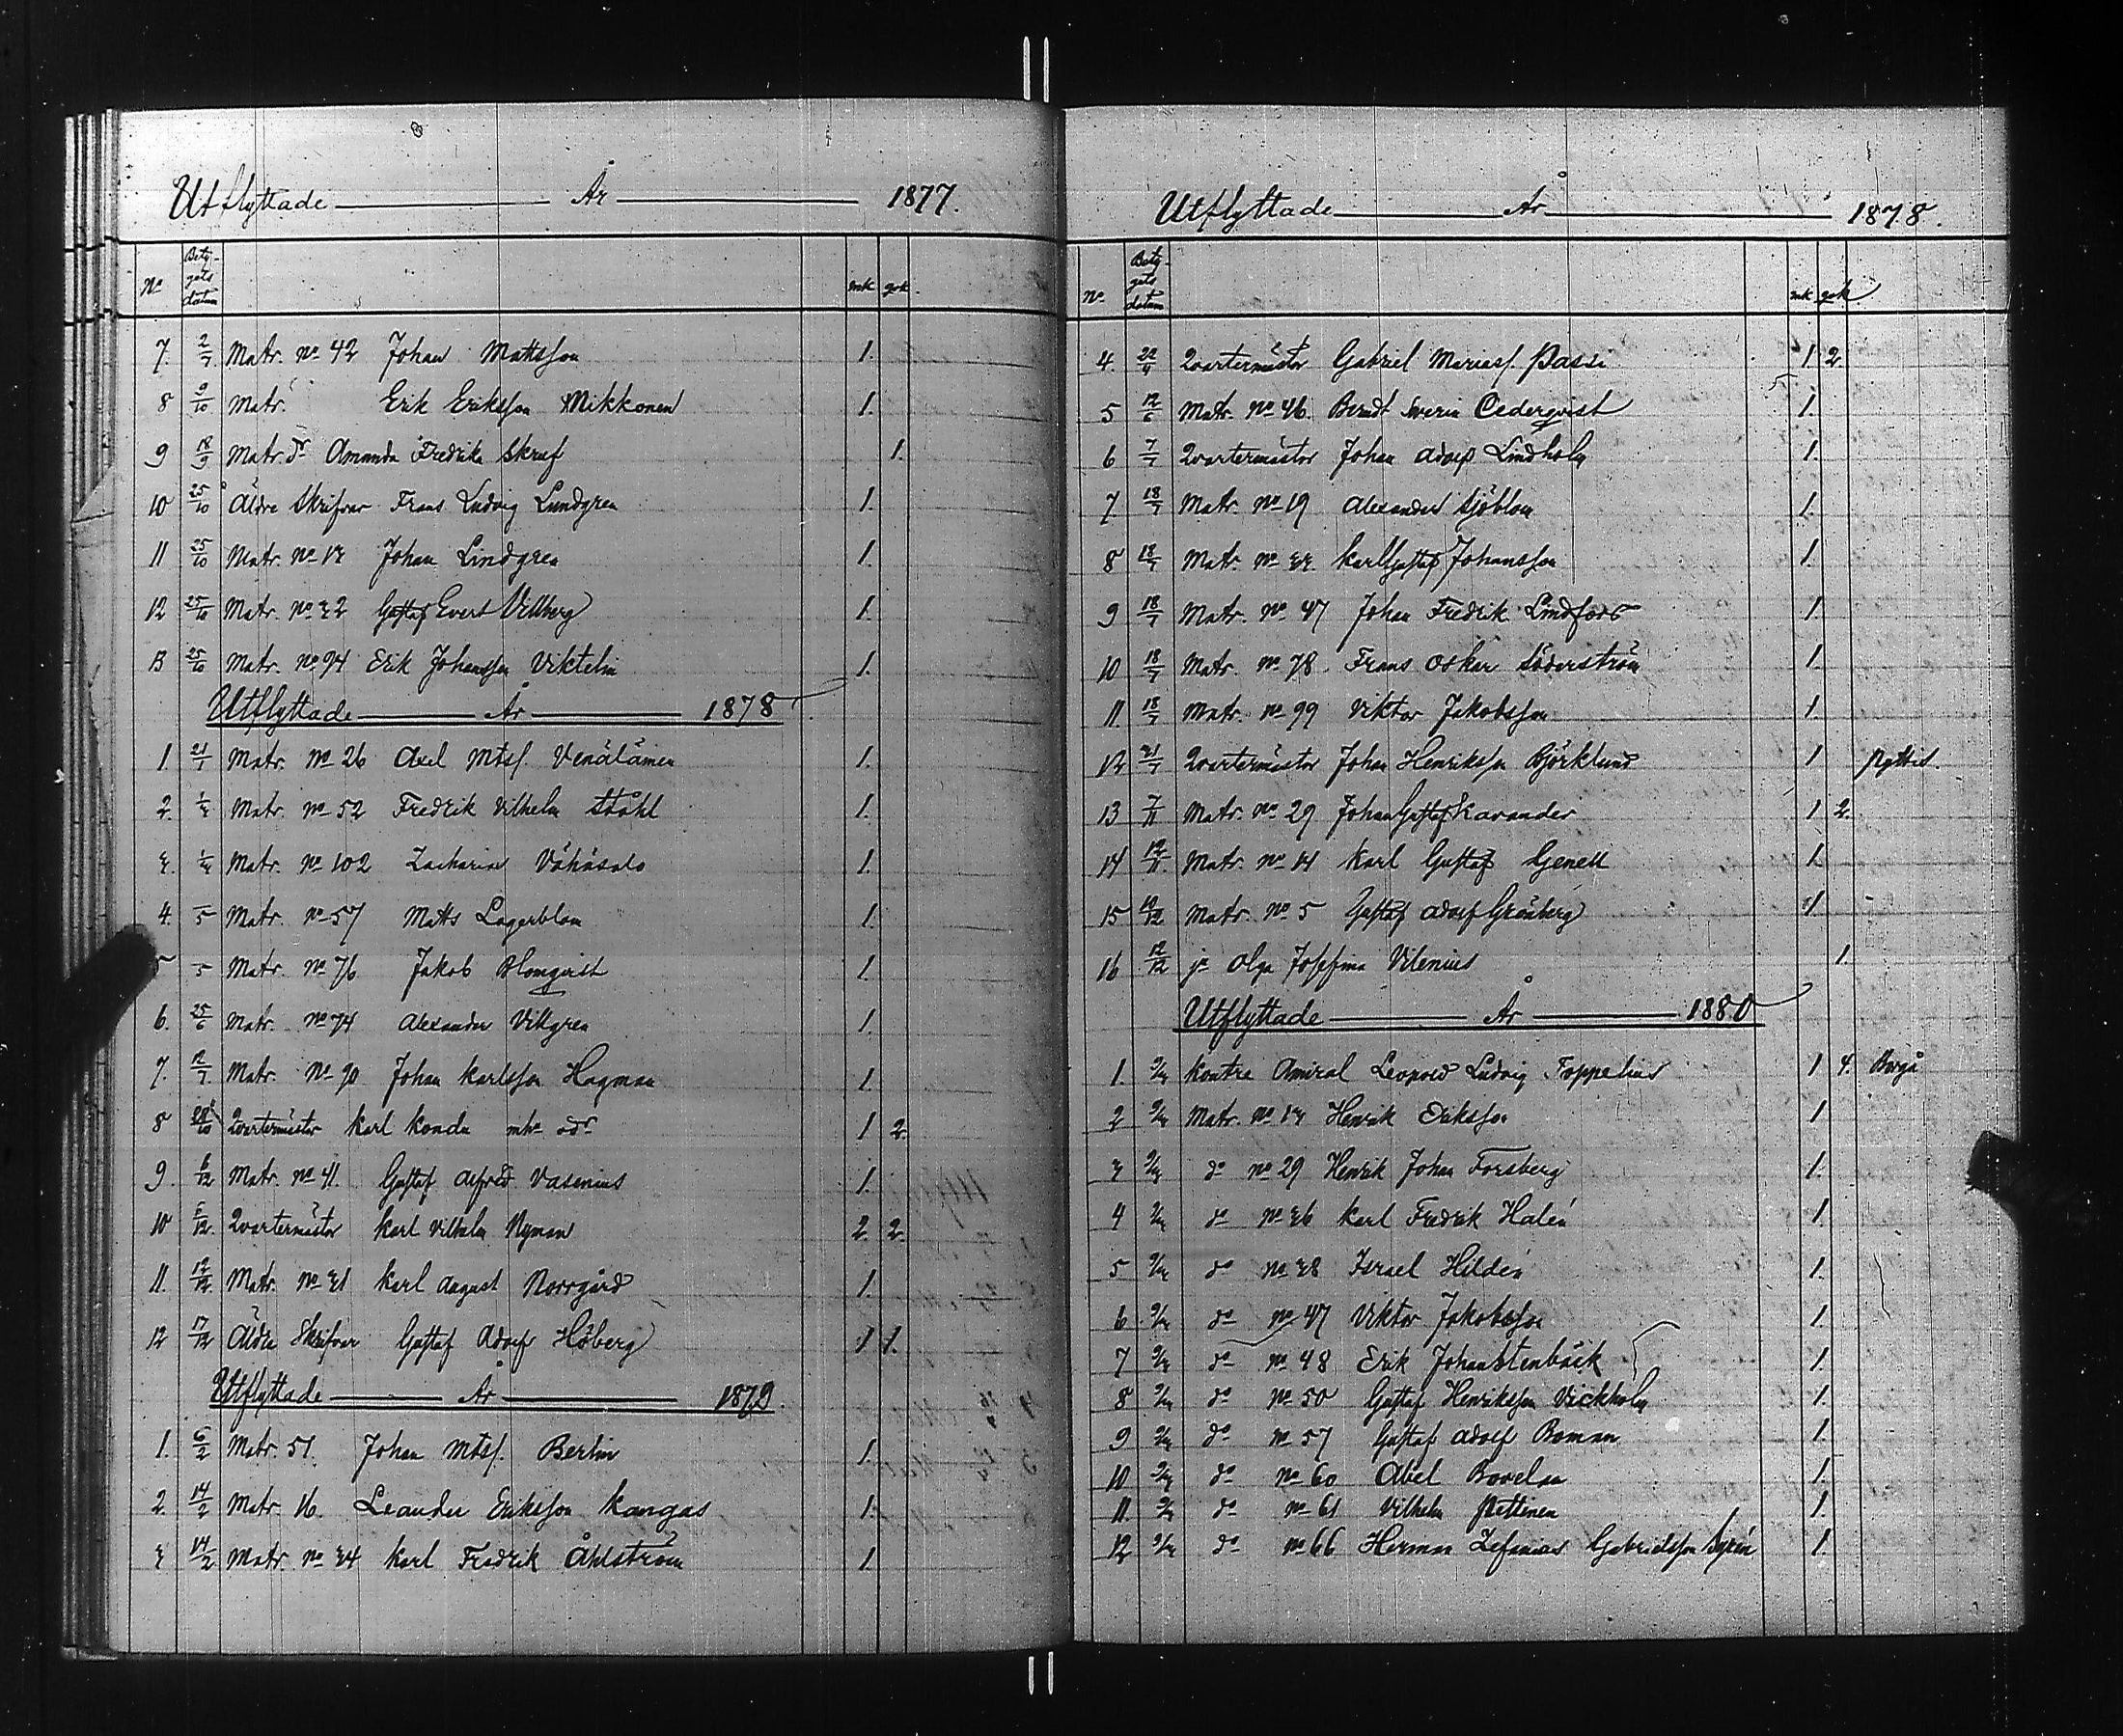 Utflyttade År 1877.
No Betygets datum mk qvk.
7. 2/7 Matr. No 42 Johan Mattsson 1.
8 9/10 Matr. Erik Eriksson Mikkonen 1.
9 18/9 Matr. dr Amanda Fredrika Skruf 1.
10 25/10 Äldre Skrifvar Frans Ludvig Lundgren 1.
11 25/10 Matr. No 13 Johan Lindgren 1.
12 25/10 Matr. No 32 Gustaf Evert Villberg 1.
13 25/10 Matr. No 94 Erik Johansson Viktelin 1.
Utflyttade År 1878
1. 21/1 Matr. No 26 Axel Mtss. Venäläinen 1.
2. 1/3 Matr. No 52 Fredrik Vilhelm Ståhl 1.
3. Matr. No 102 Zacharias Vähäsalo 1.
4. –/5 Matr. No 57 Matts Lagerblom 1.
5 –/5 Matr. No 76 Jakob Blomqvist 1.
6. 25/6 Matr. No 74 Alexander Vikgren 1.
7. 12/7 Matr. No 90 Johan Karlsson Hagman 1.
8 Qvartermästar Karl Konda 1 2.
9. 6/12 Matr. No 41. Gustaf Alfred Vasenius 1.
10 6/12. Qvartermästar Karl Vilhelm Nyman 2. 2.
11. 12/12. Matr. No 31 Karl August Norrgård 1.
12 17/12 Äldre Skrifvar Gustaf Adolf Höberg 1 1.
Utflyttade År 1879.
1. 6/2 Matr. 51. Johan Mtss. Berlin 1.
2. 14/2 Matr. 16. Leander Eriksson Kangas 1.
3 14/2 Matr. No 34 Karl Fredrik Åhlström 1.
Utflyttade År 1878.
No Betygets datum mk qvk
4. 22/4 Qvartermästar Gabriel Mariass. Passi 1. 2.
5 12/6 Matr. No 46. Berndt Severin Cederqvist 1.
6 7/7 Qvartermästar Johan Adolf Lindholm 1.
7 18/7 Matr. No 19 Alexander Sjöblom 1.
8 18/7 Matr. No 33. Karl Gustaf Johansson 1.
9 18/7 Matr. No 47 Johan Fredrik Lindfors 1.
10 18/7 Matr. No 78. Frans Oskar Söderström 1.
11. 18/7 Matr. No 99 Viktor Jakobsson 1.
12 31/7 Qvartermästar Johan Henriksson Björklund 1 Pyttis.
13 7/11 Matr. No 29 Johan Gustaf Kavander 1 2.
14 12/11. Matr. No 14 Karl Gustaf Genell 1.
15 10/12 Matr. No 5 Gustaf Adolf Grönberg 1.
16 12/12 Olga Josefina Vilenius 1.
Utflyttade År 1880
1. 9/3 Kontre Amiral Leopold Ludvig Toppelius 1 4. Borgå
2 9/3 Matr. No 13 Henrik Eriksson 1.
3 9/3 do No 29 Henrik Johan Forsberg 1.
4 9/3 do No 36 Karl Fredrik Halén 1.
5 9/3 do No 38 Israel Hildén 1.
6. 9/3 do No 47 Viktor Jakobsson 1.
7 9/3 do No 48 Erik Johan Stenbäck 1.
8 9/3 do No 50 Gustaf Henriksson Vickholm 1.
9 9/3 do No 57 Gustaf Adolf Boman 1.
10 9/3 do No 60 Abel 1.
11. 9/3 do No 61 Vilhelm Pettinen 1.
12 9/3 do No 66 Herman Zefanias Gabrielsson 1.